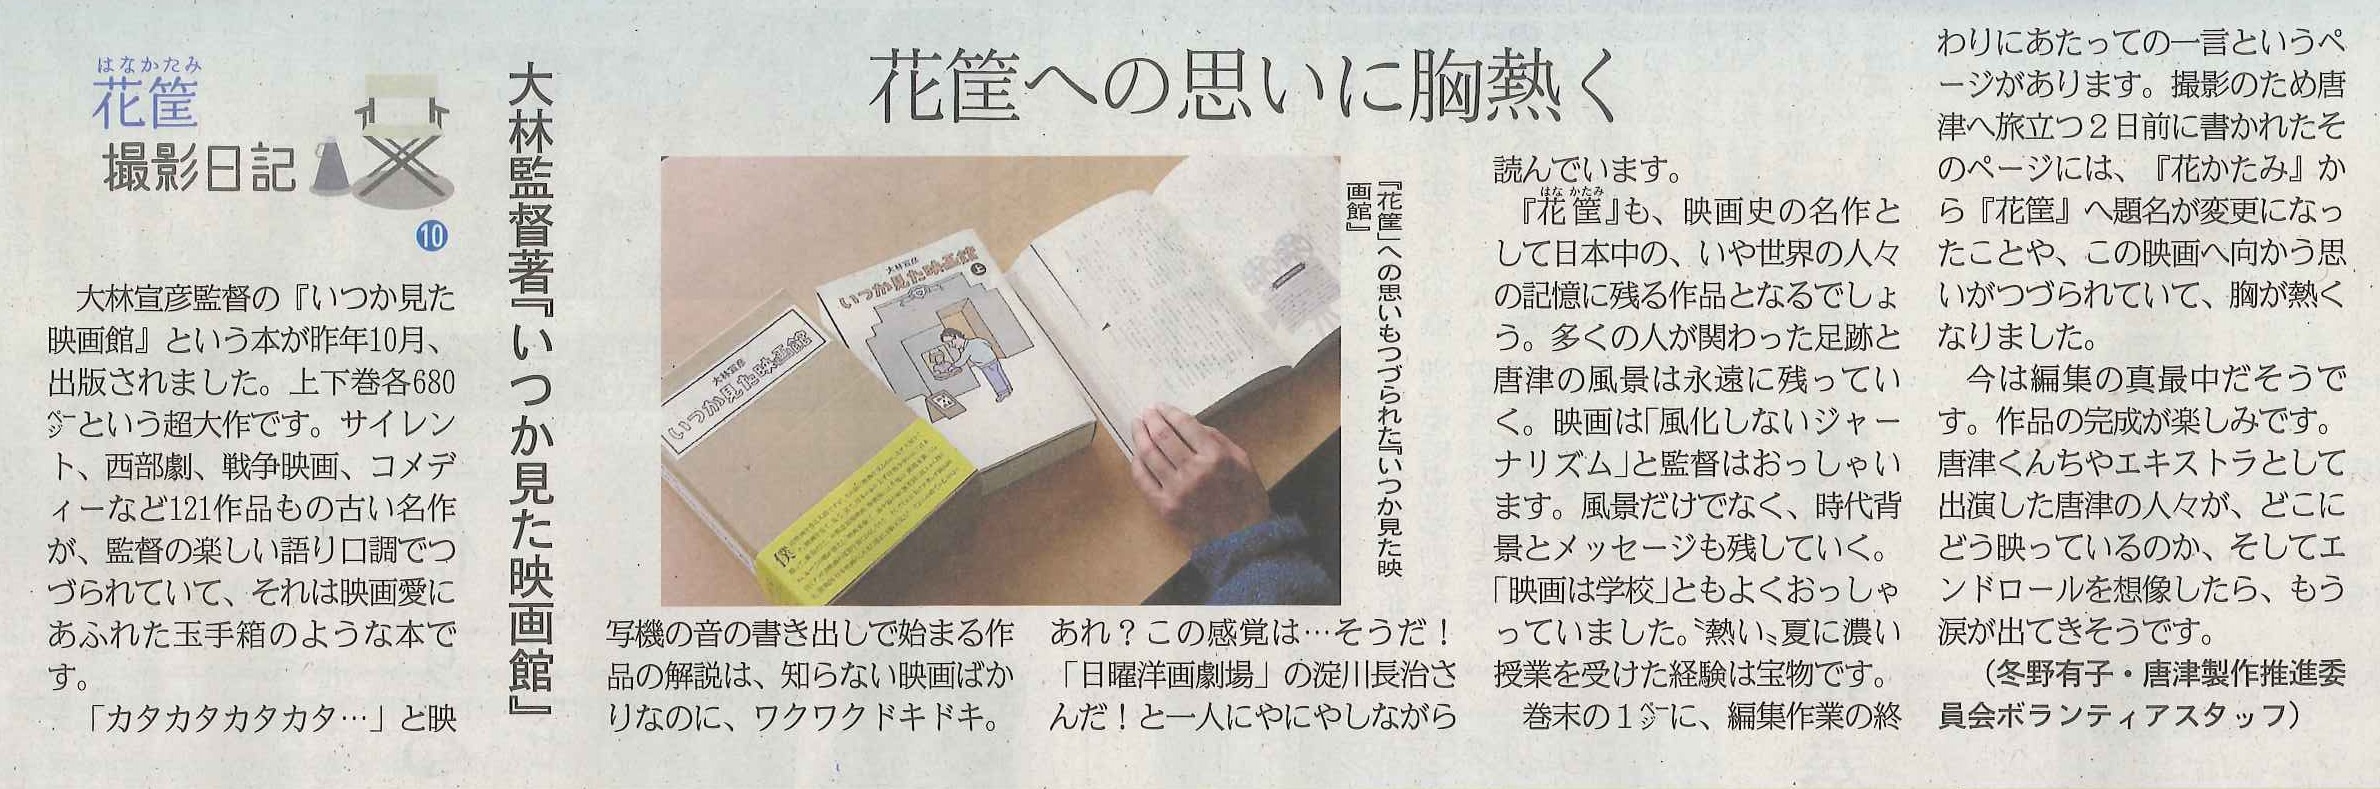 はなかたみ
花筐
撮影日記
10
大林監督著『いつか見た映画館』
花筐への思いに胸熱く
大林宣彦監督の『いつか見た
映画館』という本が昨年10月、
出版されました。上下巻各680
㌻という超大作です。サイレン
ト、西部劇、戦争映画、コメデ
ィーなど121作品もの古い名作
が、監督の楽しい語り口調でつ
づられていて、それは映画愛に
あふれた玉手箱のような本で
す。
「カタカタカタカタ…」と映
写機の音の書き出しで始まる作
品の解説は、知らない映画ばか
りなのに、ワクワクドキドキ。
あれ？この感覚は…そうだ！
「日曜洋画劇場」の淀川長治さ
んだ！と一人にやにやしながら
読んでいます。
はな かたみ
『花筐』も、映画史の名作と
して日本中の、いや世界の人々
の記憶に残る作品となるでしょ
う。多くの人が関わった足跡と
唐津の風景は永遠に残ってい
く。映画は「風化しないジャー
ナリズム」と監督はおっしゃい
ます。風景だけでなく、時代背
景とメッセージも残していく。
「映画は学校」ともよくおっしゃ
っていました。〝熱い〟夏に濃い
授業を受けた経験は宝物です。
巻末の１㌻に、編集作業の終
わりにあたっての一言というペ
ージがあります。撮影のため唐
津へ旅立つ２日前に書かれたそ
のページには、『花かたみ』か
ら『花筐』へ題名が変更になっ
たことや、この映画へ向かう思
いがつづられていて、胸が熱く
なりました。
今は編集の真最中だそうで
す。作品の完成が楽しみです。
唐津くんちやエキストラとして
出演した唐津の人々が、どこに
どう映っているのか、そしてエ
ンドロールを想像したら、もう
涙が出てきそうです。
（冬野有子・唐津製作推進委
員会ボランティアスタッフ）
『花筐』への思いもつづられた『いつか見た映
画館』
大林宣彦
いつか見た映画館
上
大林宣彦
いつか見た映画館
僕